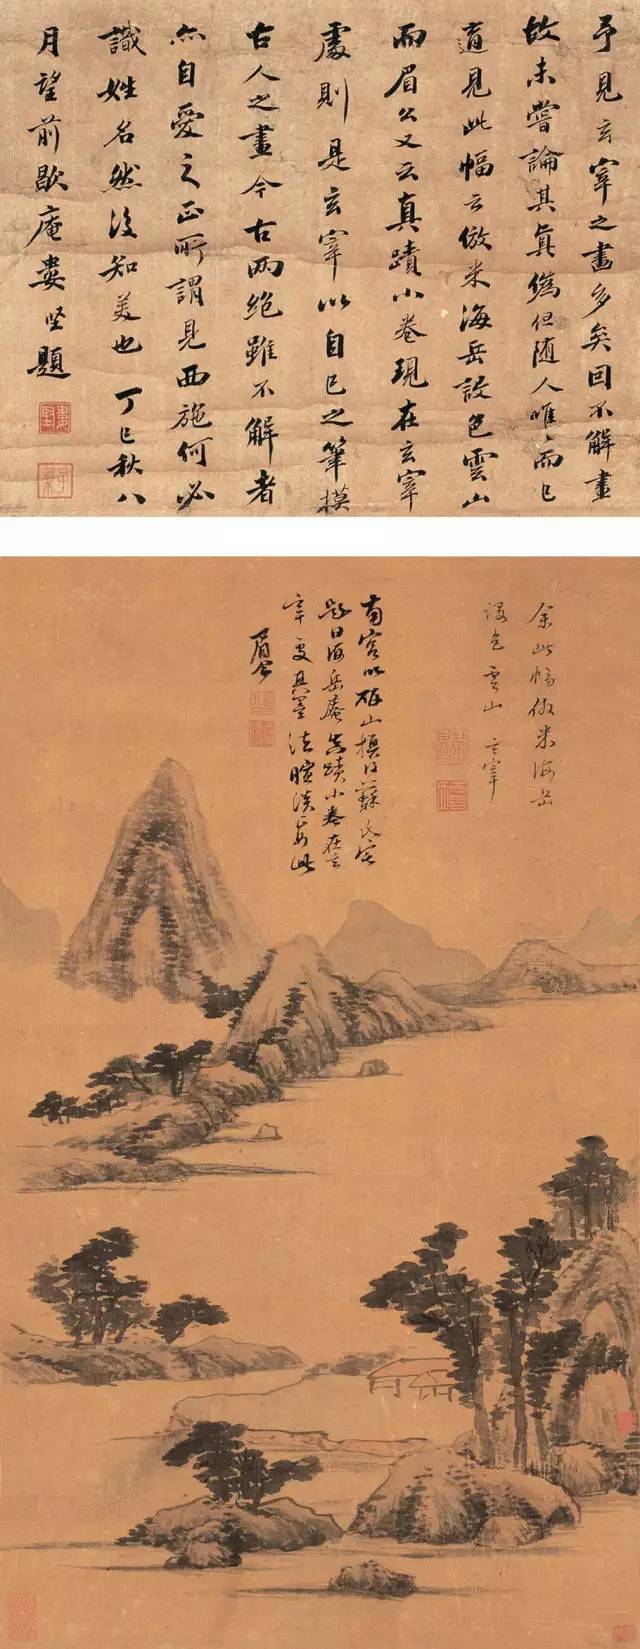 予見玄宰之畫多矣因不解畫
故未嘗論其真僞但随人唯唯而已
適見此幅云倣米海岳設色雲山
而眉公又云真蹟小卷現在玄宰
處則是玄宰以自己之筆摸
古人之畫今古兩絶雖不解者
亦自愛之正所謂見西施何必
識姓名然後知美也丁巳秋八
月望前歇庵婁坚題
余此幅倣米海岳
設色雲山玄宰
南宫以研山换得蘇氏宅
題曰海岳庵真蹟小卷在玄
宰處其墨法暄淡
眉公